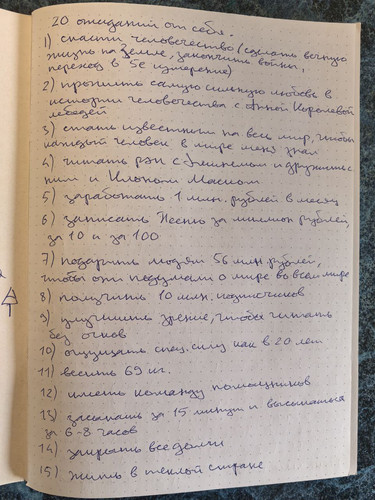 20 ожиданий от себя.
1) спасти человечество (сделать вечную
жизнь на Земле, закончить войны,
переход в 5е измерение)
2) прожить самую сильную любовь в
истории человечества с Анной Королевой
лебедей
3) стать известным на весь мир, чтобы
каждый человек в мире меня знал
4) читать рэп с Эминемом и дружить с
ним и Илоном Маском
5) заработать 1 млн. рублей в месяц
6) записать песню за миллион рублей,
за 10 и за 100
7) подарить людям 56 млн. рублей,
чтобы они подумали о мире во всем мире
8) получить 10 млн. подписчиков
9) улучшить зрение, чтобы читать
без очков
10) ощущать силу как в 20 лет
11) весить 69 кг.
12) иметь команду помощников
13) засыпать за 15 минут и высыпаться
за 6-8 часов
14) закрыть все долги
15) жить в теплой стране